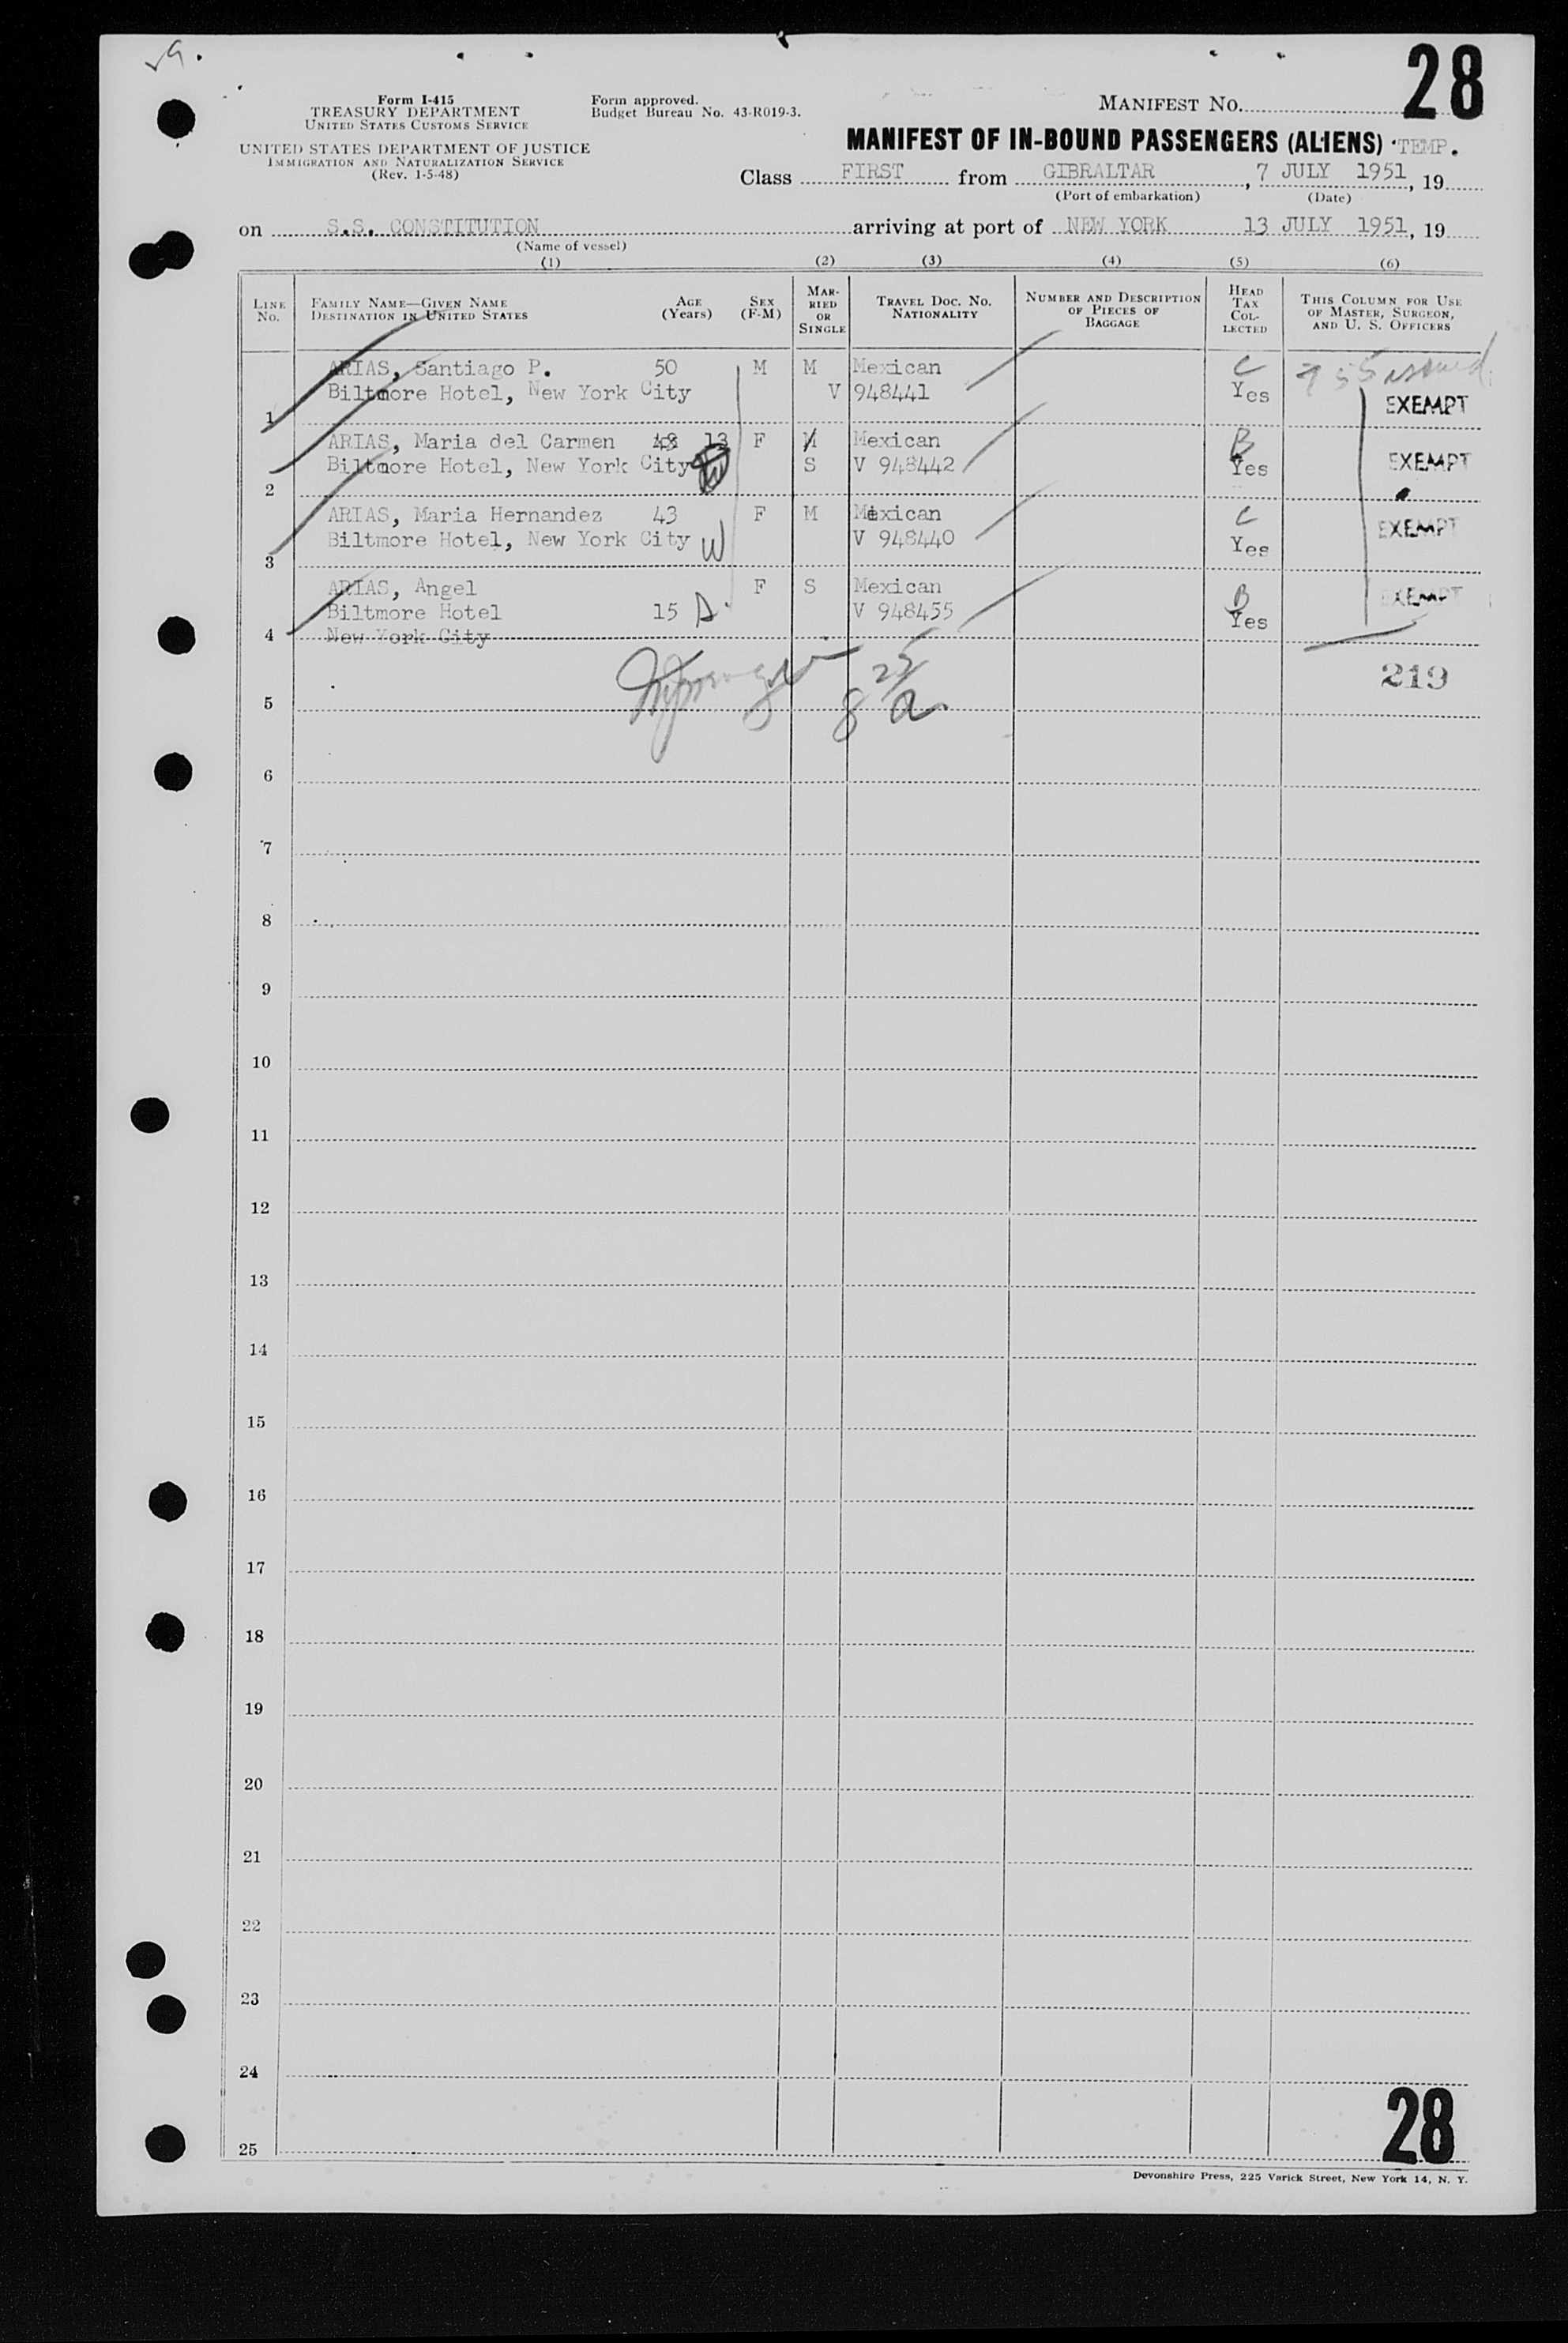 28
Form I-415
TREASURY DEPARTMENT
UNITED STATES CUSTOMS SERVICE
UNITED STATES DEPARTMENT OF JUSTICE
IMMIGRATION AND NATURALIZATION SERVICE
(Rev. 1-5-48)
Form approved.
Budget Bureau No. 43-R019-3.
MANIFEST NO.
MANIFEST OF IN-BOUND PASSENGERS (ALIENS) TEMP.
Class FIRST from GIBRALTAR, 7 JULY 1951, 19
(Port of embarkation) (Date)
on S.S. CONSTITUTION arriving at port of NEW YORK 13 JULY 1951, 19
(Name of vessel)
(1) (2) (3) (4) (5) (6)
LINE NO.
FAMILY NAME—GIVEN NAME
DESTINATION IN UNITED STATES
AGE (Years)
SEX (F-M)
MARRIED OR SINGLE
TRAVEL DOC. NO.
NATIONALITY
NUMBER AND DESCRIPTION OF PIECES OF BAGGAGE
HEAD TAX COLLECTED
THIS COLUMN FOR USE OF MASTER, SURGEON, AND U. S. OFFICERS
ARIAS, Santiago P. 50 M M Mexican C issued
Biltmore Hotel, New York City V 948441 Yes EXEMPT
1
ARIAS, Maria del Carmen 48 13 F M Mexican B
Biltmore Hotel, New York City S V 948442 Yes EXEMPT
2
ARIAS, Maria Hernandez 43 F M Mexican C EXEMPT
Biltmore Hotel, New York City W V 948440 Yes
3
ARIAS, Angel F S Mexican B EXEMPT
Biltmore Hotel 15 D. V 948455 Yes
4 New York City
219
5
6
7
8
9
10
11
12
13
14
15
16
17
18
19
20
21
22
23
24
25
28
Devonshire Press, 225 Varick Street, New York 14, N. Y.